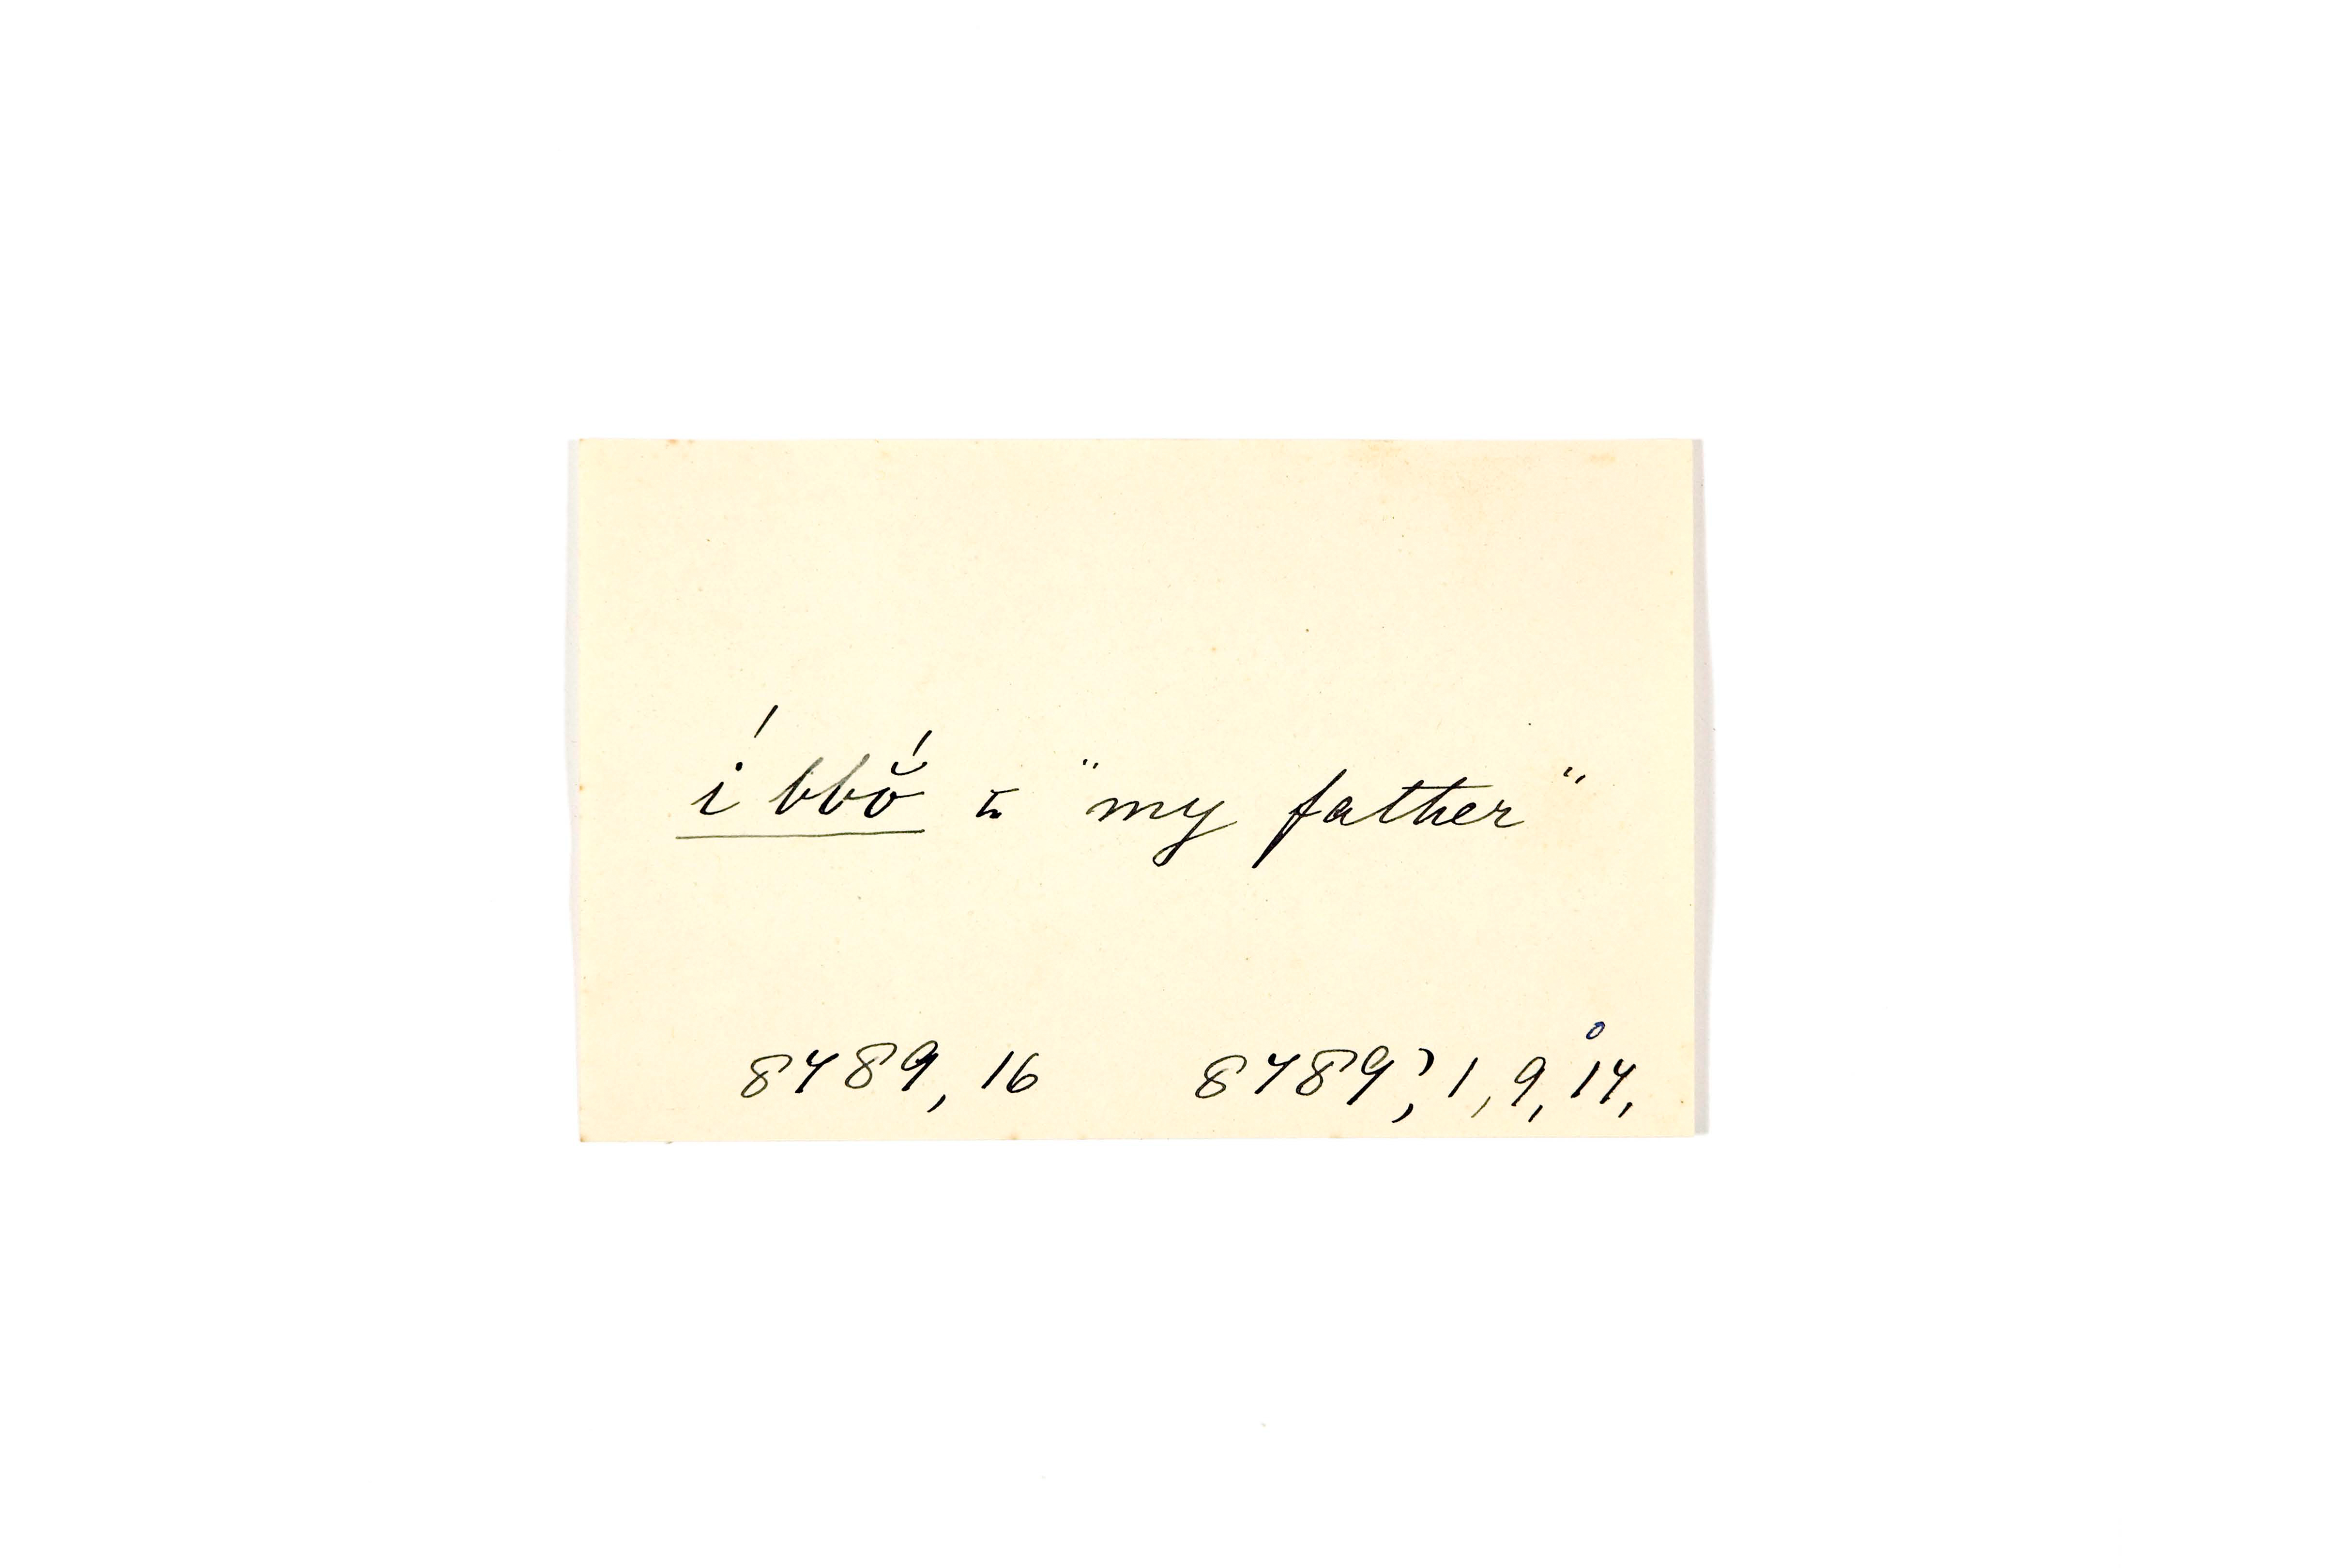 í bbŏ́ = "my father"
8489, 16 8489, 1, 9, 14,